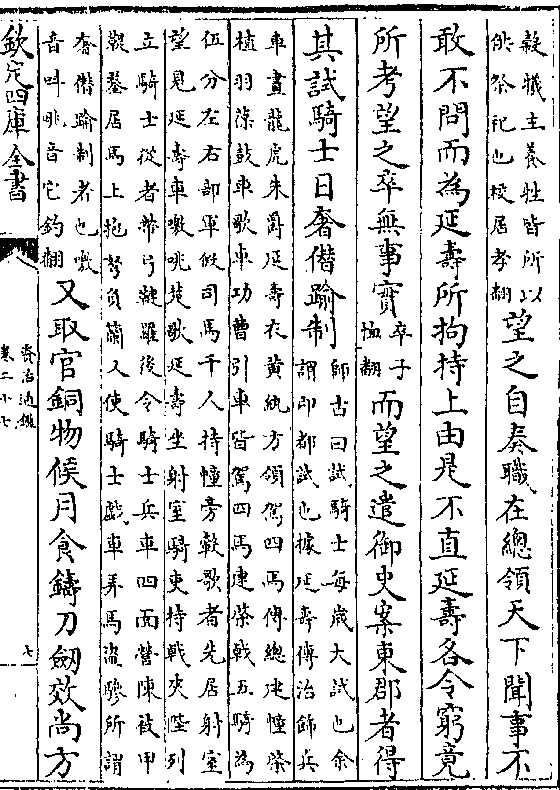 穀犧主養牲皆所以
供祭祀也校居孝翻
望之自奏職在總領天下聞事不
敢不問而為延壽所拘持上由是不直延壽各令窮竟
所考望之卒無事實
卒子
恤翻
而望之遣御史案東郡者得
其試騎士日奢僭踰制
師古曰試騎士每歲大試也余
謂即都試也據延壽傳治飾兵
車畫龍虎朱爵延壽衣黄紈方領駕四馬傅總建幢棨
植羽葆鼓車歌車功曹引車皆駕四馬建棨戟五騎為
伍分左右部軍假司馬千人持幢旁轂歌者先居射室
望見延壽車噭咷楚歌延壽坐射室騎吏持戟夾陛列
立騎士從者帶弓鞬羅後令騎士兵車四面營陳被甲
鞮鍪居馬上抱弩負籣又使騎士戲車弄馬盜驂所謂
奢僭踰制者也噭
音叫咷音它釣翻
又取官銅物候月食鑄刀劒效尚方
欽定四庫全書
資治通鑑
卷二十七
七